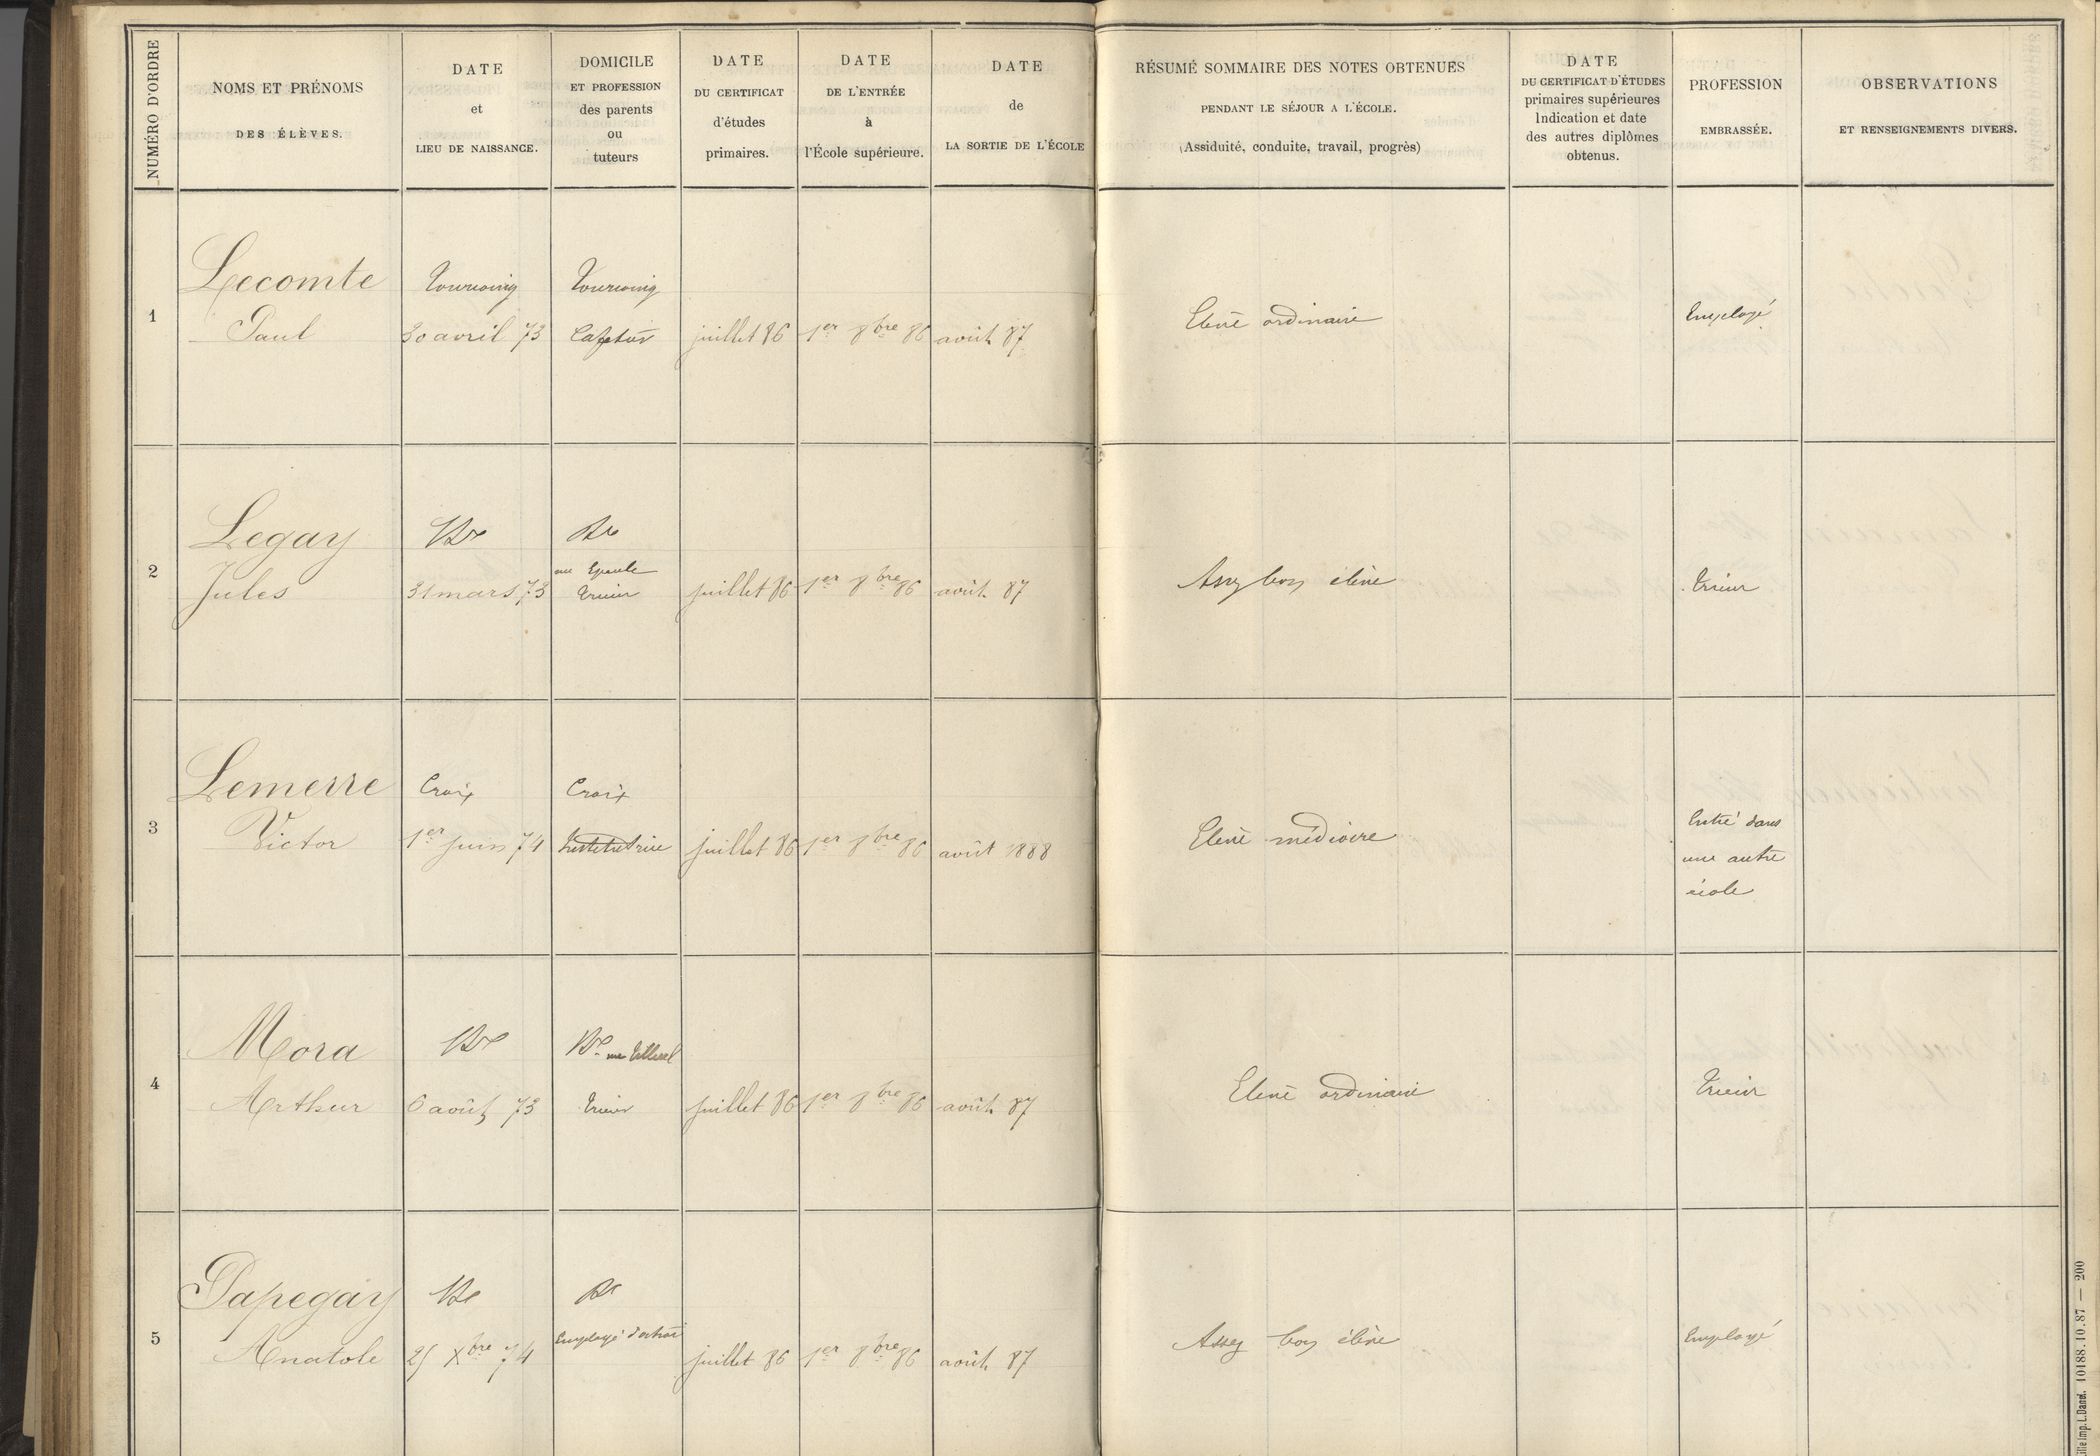 NUMÉRO D'ORDRE
NOMS ET PRÉNOMS
DES ÉLÈVES.
DATE
et
LIEU DE NAISSANCE.
DOMICILE
ET PROFESSION
des parents
ou
tuteurs
DATE
DU CERTIFICAT
d'études
primaires.
DATE
DE L'ENTRÉE
à
l'École supérieure.
DATE
de
LA SORTIE DE L'ÉCOLE
RÉSUMÉ SOMMAIRE DES NOTES OBTENUES
PENDANT LE SÉJOUR A L'ÉCOLE.
(Assiduité, conduite, travail, progrès)
DATE
DU CERTIFICAT D'ÉTUDES
primaires supérieures
Indication et date
des autres diplômes
obtenus.
PROFESSION
EMBRASSÉE.
OBSERVATIONS
ET RENSEIGNEMENTS DIVERS.
1
Lecomte
Paul
Tourcoing
30 avril 73
Tourcoing
juillet 86
1er 8bre 86
août 87
Elève ordinaire
Employé
2
Legay
Jules
Rx
31 mars 73
Rx
rue
trieur
juillet 86
1er 8bre 86
août 87
Assez bon élève
trieur
3
Lemerre
Victor
Croix
1er juin 74
Croix
Institutrice
juillet 86
1er 8bre 86
août 1888
Elève médiocre
Entré dans
une autre
école
4
Mora
Arthur
Rx
6 août 73
Rx rue
trieur
juillet 86
1er 8bre 86
août 87
Elève ordinaire
Trieur
5
Papegay
Anatole
Rx
25 Xbre 74
Rx
Employé d'octroi
juillet 86
1er 8bre 86
août 87
Assez bon élève
Employé
Lille Imp. L. Danel. 10188.10.87 — 200